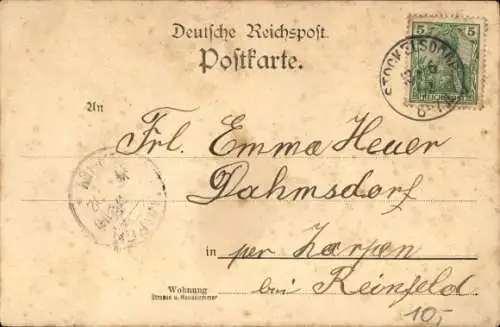 Deutsche Reichspost.
Postkarte.
5 5
STOCKELSDORF
An
Frl. Emma Heuer
Dahmsdorf
in per Zarpen
bei Reinfeld
Wohnung
Strasse u. Hausnummer
10,-